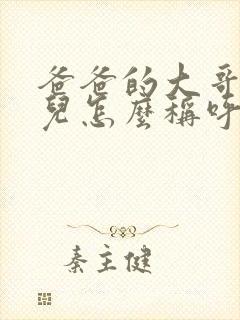 爸爸的大哥
兒怎麼稱呼
秦主健